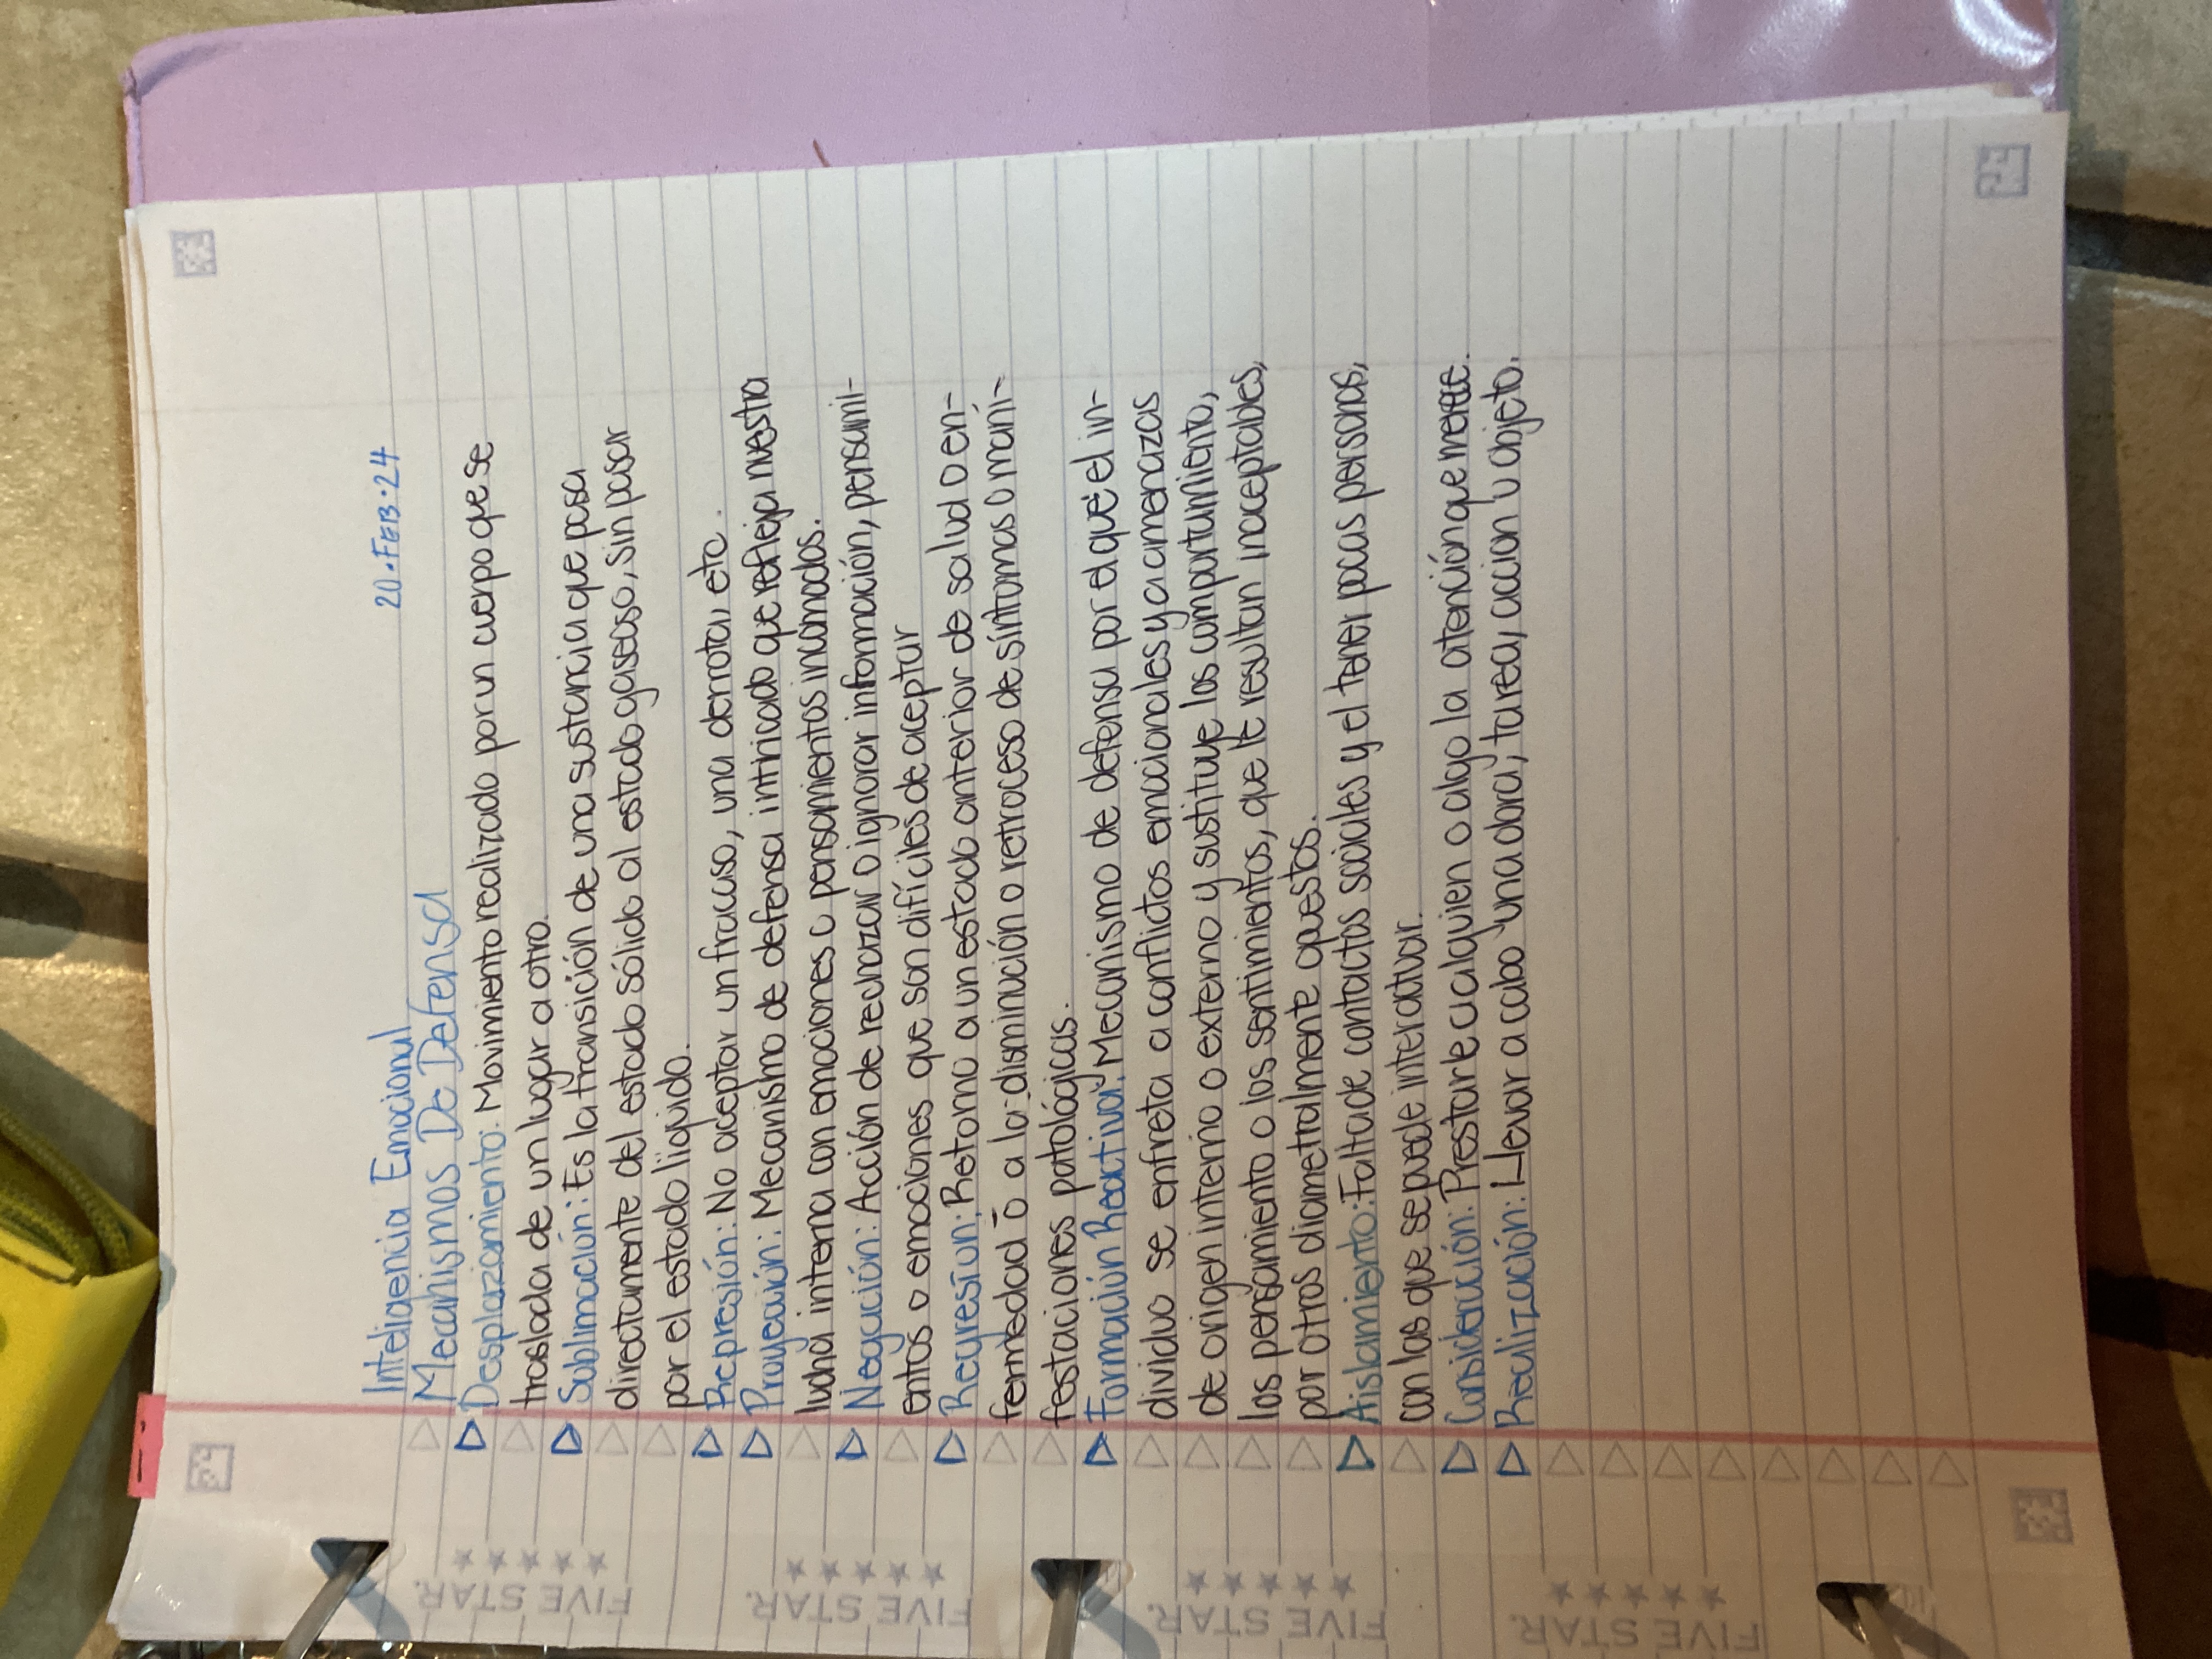 20·FEB·24
Inteligencia Emocional
Mecanismos De Defensa
Desplazamiento: Movimiento realizado por un cuerpo que se
traslada de un lugar a otro.
Sublimación: Es la transición de una sustancia que pasa
directamente del estado sólido al estado gaseoso, sin pasar
por el estado líquido.
Represión: No aceptar un fracaso, una derrota, etc.
Proyección: Mecanismo de defensa intrincado que refleja nuestra
lucha interna con emociones o pensamientos incómodos.
Negación: Acción de rechazar o ignorar información, pensami-
entos o emociones que son difíciles de aceptar
Regresión: Retorno a un estado anterior de salud o en-
fermedad o a la disminución o retroceso de síntomas o mani-
festaciones patológicas.
Formación Reactiva: Mecanismo de defensa por el que el in-
dividuo se enfreta a conflictos emocionales y a amenazas
de origen interno o externo y sustituye los comportamiento,
los pensamiento o los sentimientos, que le resultan inaceptables,
por otros diametralmente opuestos.
Aislamiento: Falta de contactos sociales y el tener pocas personas,
con las que se puede interactuar.
Consideración: Prestarle a alguien o algo la atención que merece.
Realización: Llevar a cabo una obra, tarea, acción u objeto.
FIVE STAR.
FIVE STAR.
FIVE STAR.
FIVE STAR